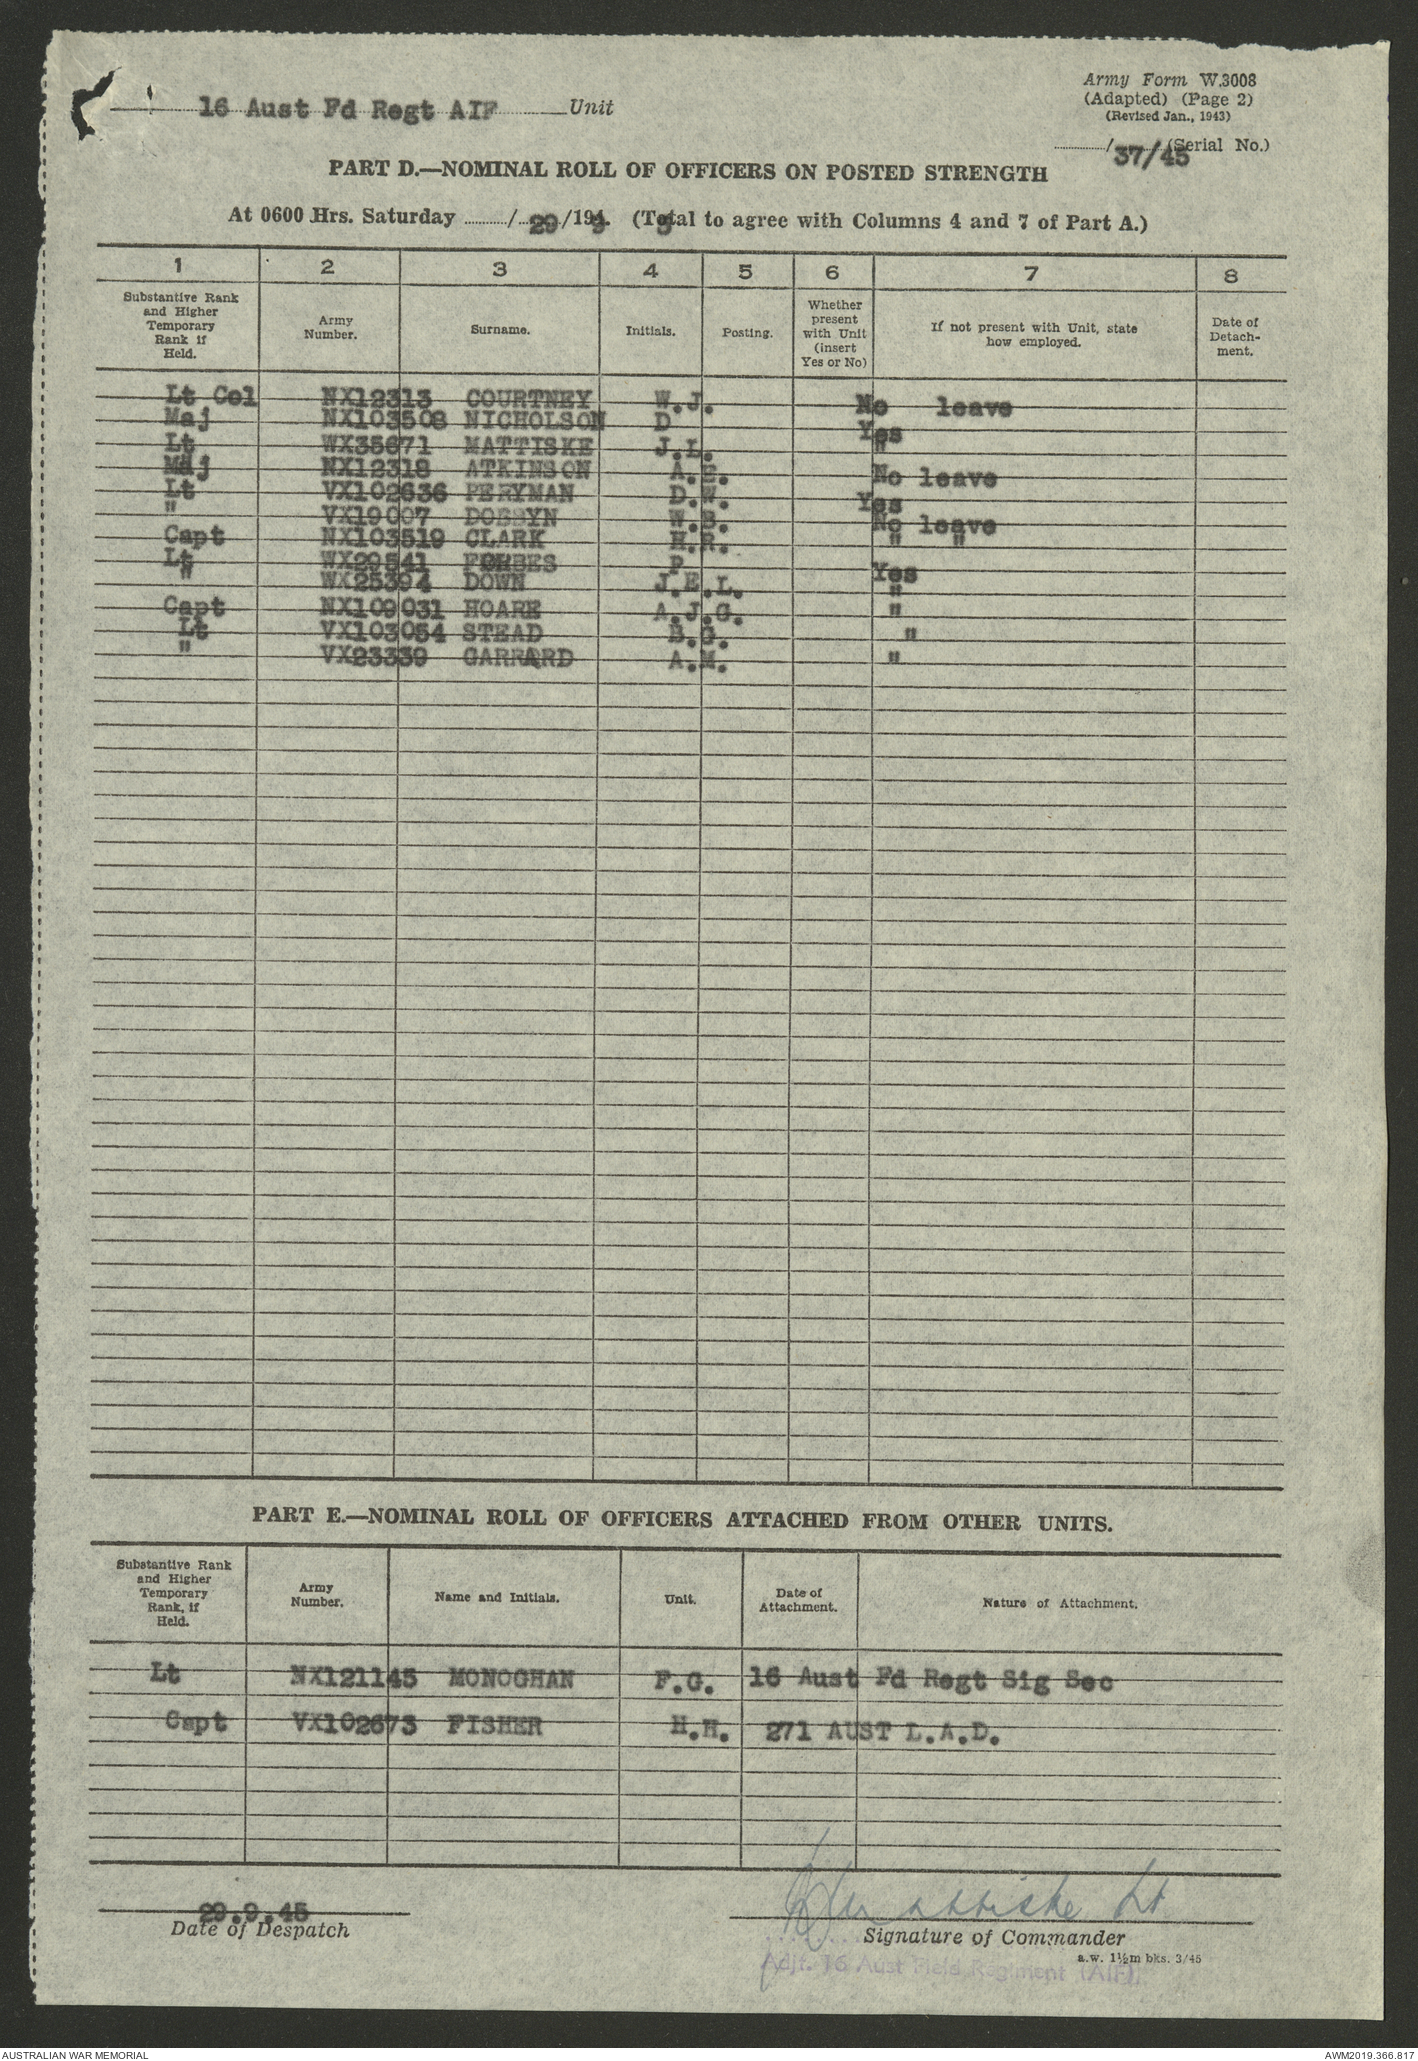 Army Form W.3008
(Adapted) (Page 2)
(Revised Jan., 1943)
16 Aust Fd Regt AIF Unit
/37/45 (Serial No.)
PART D.—NOMINAL ROLL OF OFFICERS ON POSTED STRENGTH
At 0600 Hrs. Saturday / 29 /194 9 5. (Total to agree with Columns 4 and 7 of Part A.)
1 2 3 4 5 6 7 8
Substantive Rank and Higher Temporary Rank if Held. Army Number. Surname. Initials. Posting. Whether present with Unit (insert Yes or No) If not present with Unit, state how employed. Date of Detach-ment.
Lt Col NX12313 COURTNEY W.J. No leave
Maj NX103508 NICHOLSON D Yes
Lt WX35671 MATTISKE J.L. "
Maj NX12318 ATKINSON A.E. No leave
Lt VX102636 PERYMAN D.W. Yes
" VX19007 DOBSYN W.B. No leave
Capt NX103519 CLARK H.R. " "
Lt WX29541 FORBES P. Yes
" WX25394 DOWN J.E.L. "
Capt NX109031 HOARE A.J.G. "
Lt VX103054 STEAD B.G. "
" VX23339 GARRARD A.M. "
PART E.—NOMINAL ROLL OF OFFICERS ATTACHED FROM OTHER UNITS.
Substantive Rank and Higher Temporary Rank, if Held. Army Number. Name and Initials. Unit. Date of Attachment. Nature of Attachment.
Lt NX121145 MONOGHAN F.G. 16 Aust Fd Regt Sig Sec
Capt VX102673 FISHER H.H. 271 AUST L.A.D.
29.9.45
Date of Despatch
JLMattiske Lt
Signature of Commander
a.w. 1½m bks. 3/45
Adjt. 16 Aust Field Regiment (AIF).
AUSTRALIAN WAR MEMORIAL
AWM2019.366.817